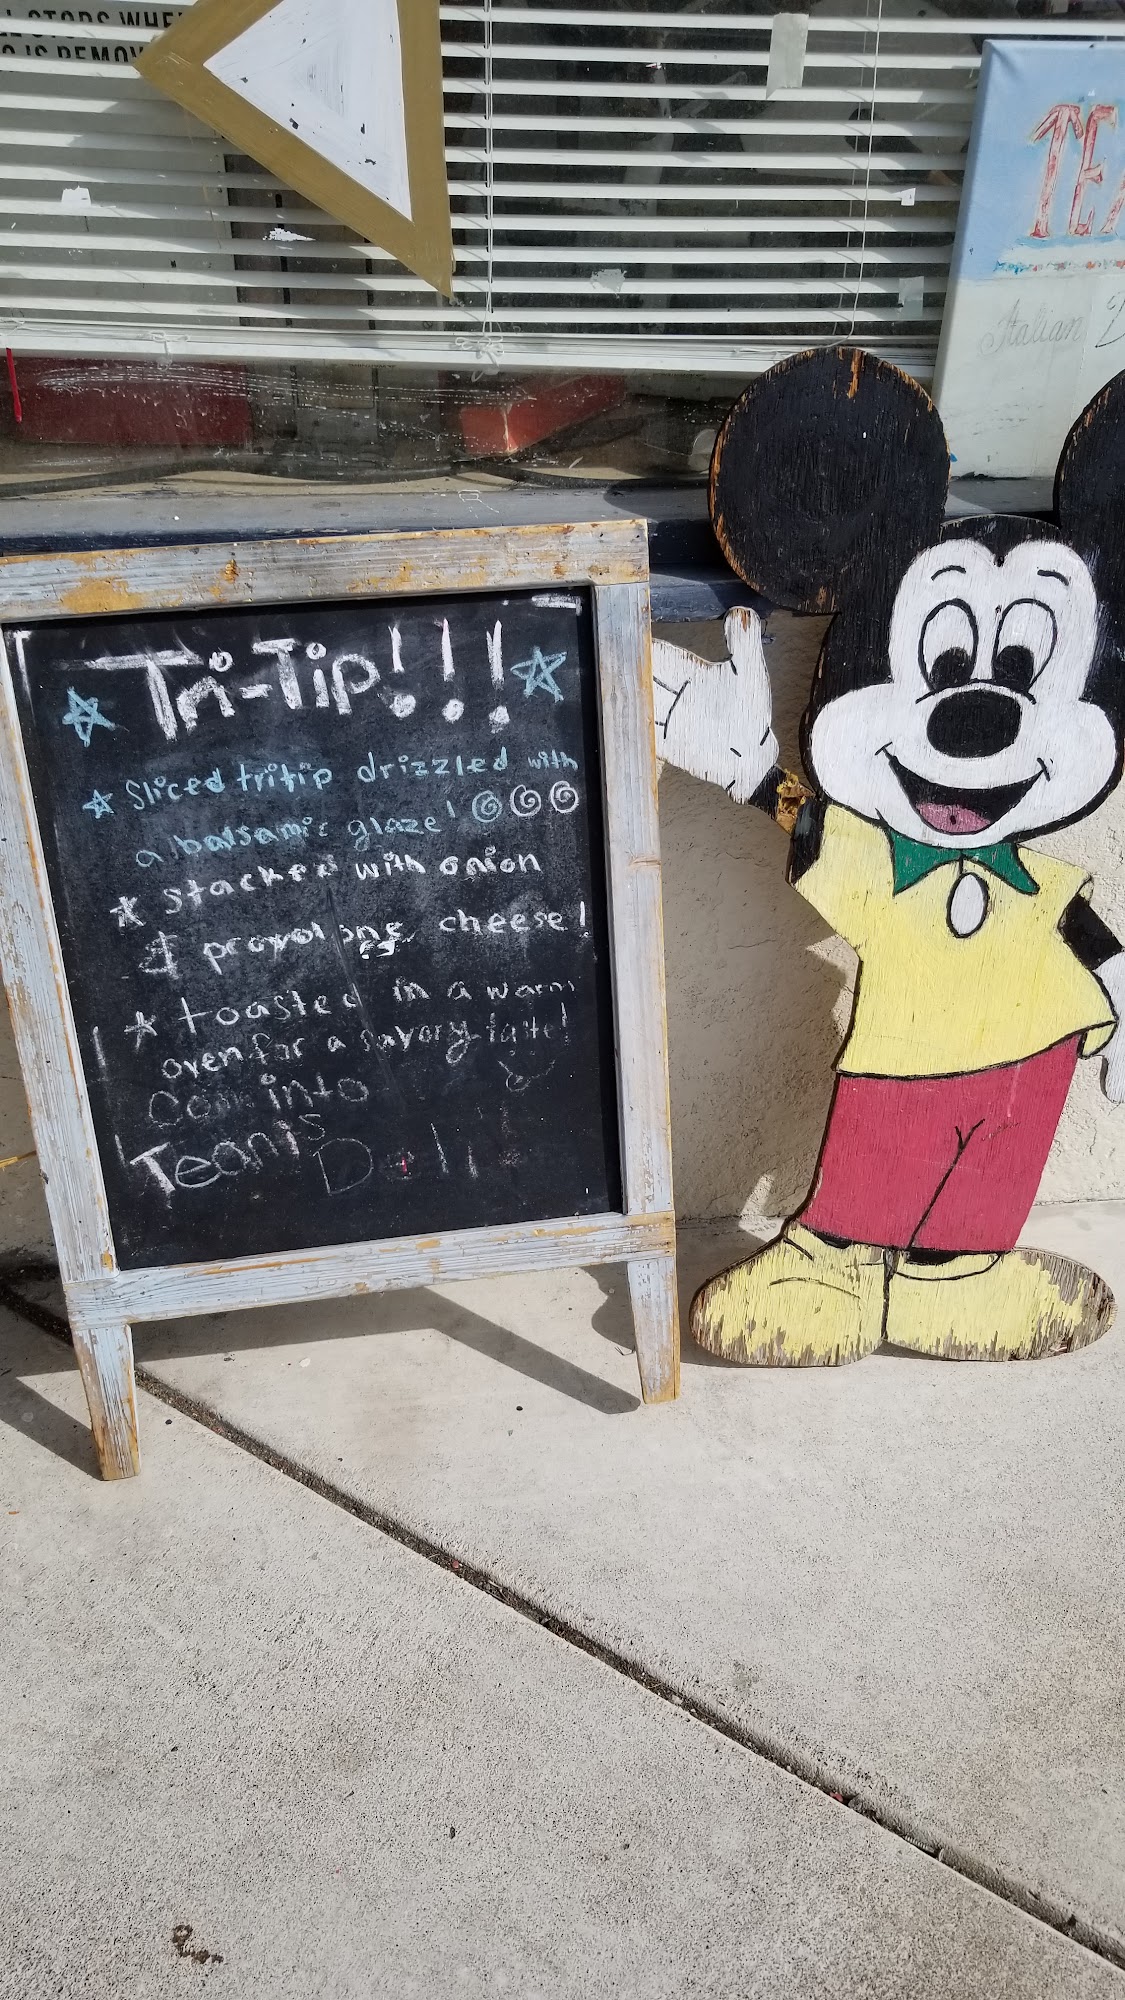 STOPS WHE
IS REMOV
TEA
Italian
Tri-Tip!!!
Sliced tritip drizzled with
a balsamic glaze!
stacked with onion
& provolone cheese!
toasted in a warm
oven for a savory taste!
Come into
Teani's Deli!